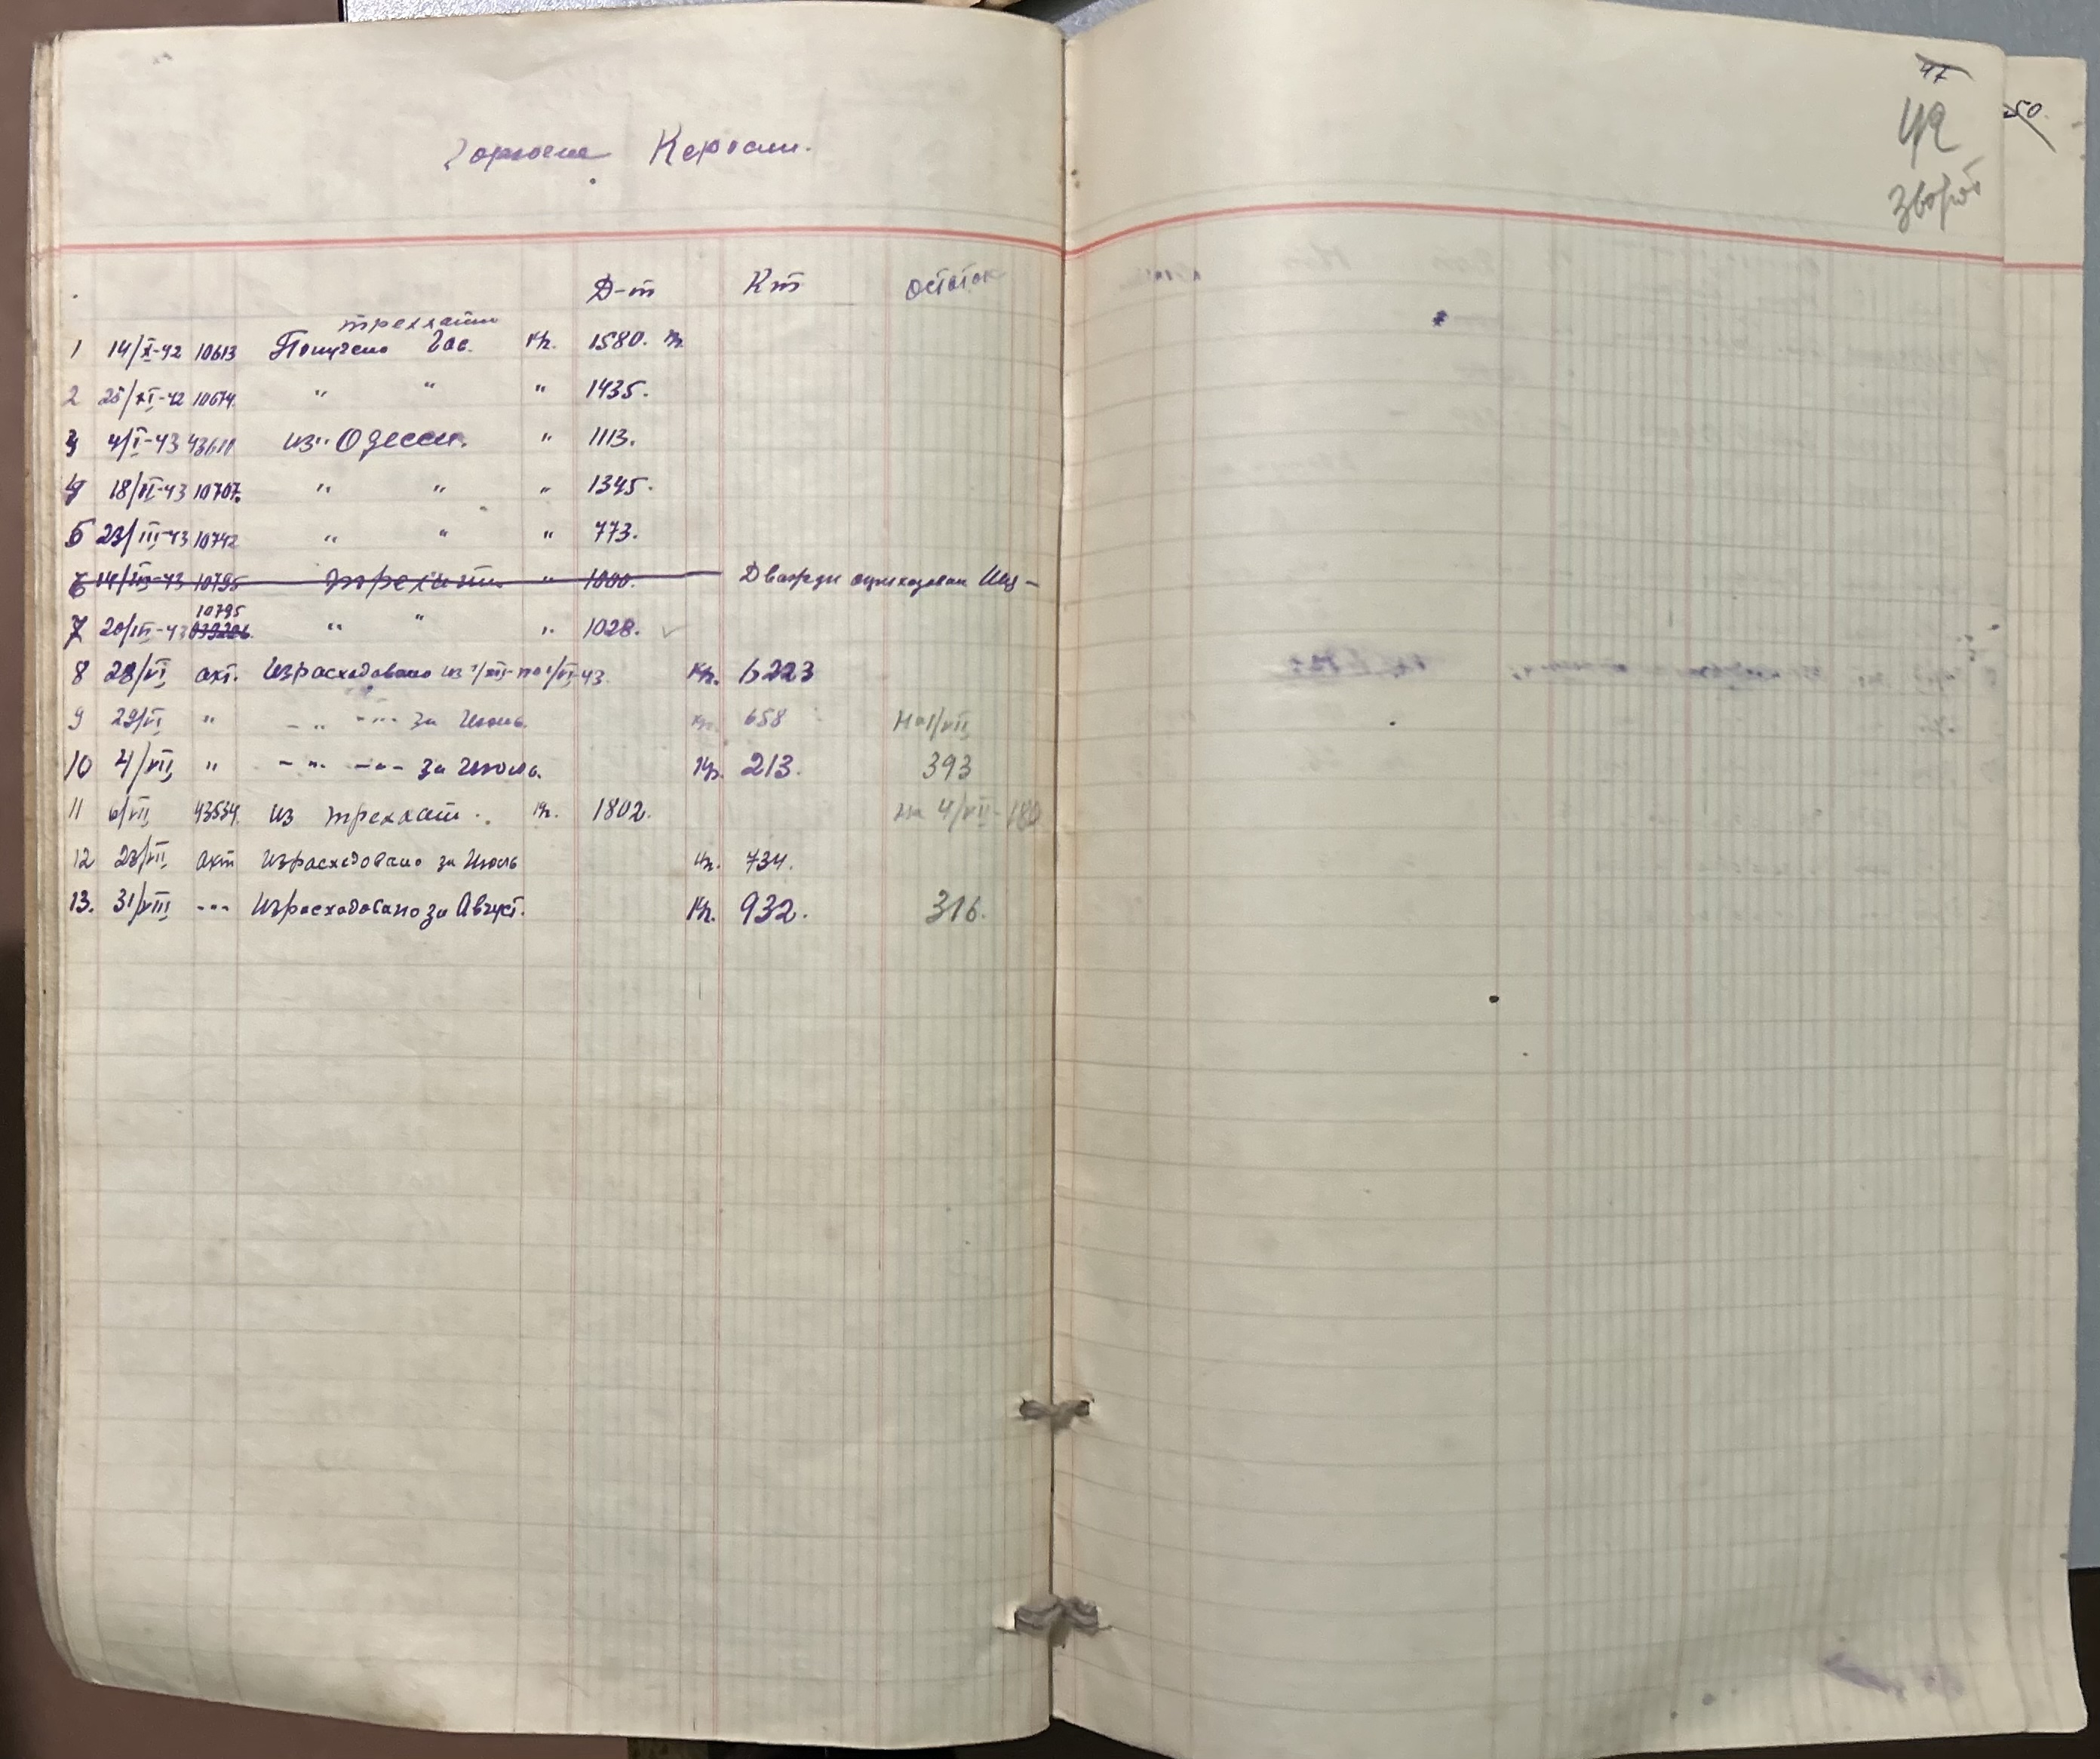 47
42
зворот
50.
Горючее Керосин.
Д-т Кт Остаток
трехлати
1 14/X-42 10613 Получено Кг. 1580.
2 25/XI-42 10674 " " " 1435.
3 4/I-43 43611 из Одессы. " 1113.
4 18/II-43 10707. " " " 1345.
5 23/III-43 10742 " " " 773.
6 14/III-43 10795 трехлати " 1000. Дважды оприходован
10795
7 20/III-43 " " " 1028.
8 28/VI акт. Израсходовано Кг. 6223
9 29/VI " - " - " - за Июнь. Кг. 658 на 1/VII
10 4/VII " - " - - " - за Июль. Кг. 213. 393
11 6/VII 43534. из трехлат. Кг. 1802. на 4/VII - 180
12 23/VII акт Израсходовано за Июль Кг. 734.
13. 31/VIII - " - Израсходовано за Август. Кг. 932. 316.